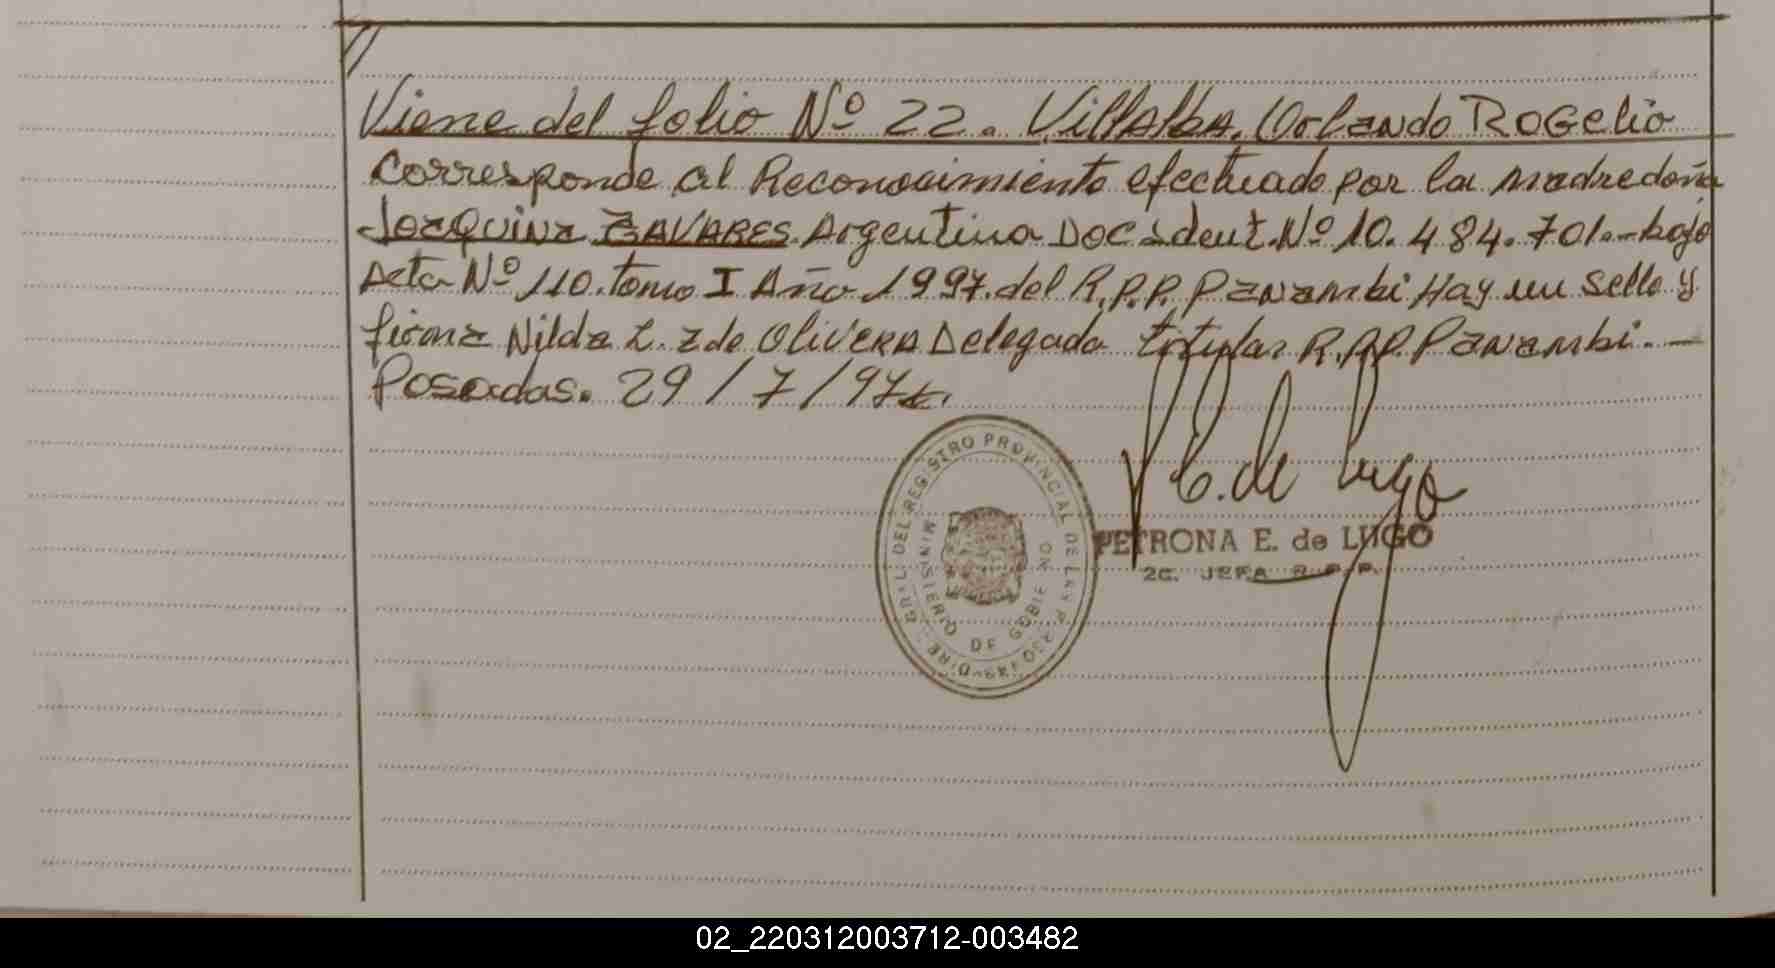 //
Viene del folio Nº 22. VillAlbA, Orlando ROGelio
Corresponde al Reconocimiento efectuado por la madre doña
JoaQuina ZAVARES Argentina Doc ident. Nº 10.484.701.- bajo
Acta Nº 110. tomo I Año 1997. del R.P.P. Panambi Hay un sello y
firma Nilda L. Z de OliVERA Delegada titular R.P.P. Panambi. -
Posadas. 29/7/97
P. E. de Lugo
PETRONA E. de LUGO
2a. JEFA R.P.P.
DIREC. GRAL. DEL REGISTRO PROVINCIAL DE LAS PERSONAS
MINISTERIO DE GOBIERNO
02_220312003712-003482